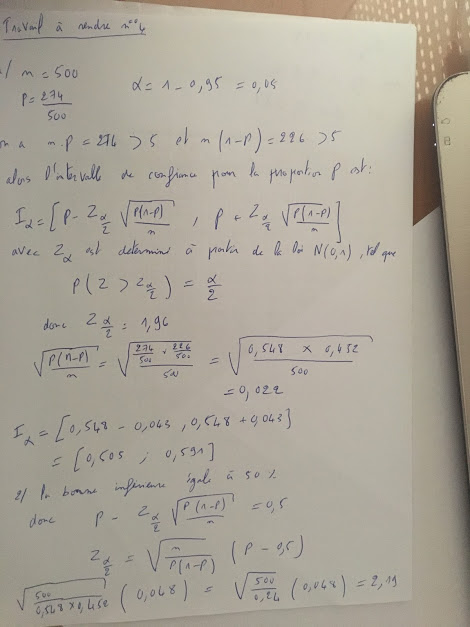 Travail à rendre n°4
1/ n = 500 α = 1 - 0,95 = 0,05
P = 274/500
on a n.p = 274 > 5 et n(1-p) = 226 > 5
alors l'intervalle de confiance pour la proportion P est:
Iα = [P - Zα/2 √(P(1-P)/n) , P + Zα/2 √(P(1-P)/n)]
avec Zα est determiné à partir de la loi N(0,1), tel que
P(Z > Zα/2) = α/2
donc Zα/2 = 1,96
√(P(1-P)/n) = √((274/500 × 226/500)/500) = √((0,548 × 0,452)/500)
= 0,022
Iα = [0,548 - 0,043 , 0,548 + 0,043]
= [0,505 ; 0,591]
2/ la borne inferieure égale à 50 %
donc P - Zα/2 √(P(1-P)/n) = 0,5
Zα/2 = √(n/(P(1-P))) (P - 0,5)
√(500/(0,548 × 0,452)) (0,048) = √(500/0,24) (0,048) = 2,19